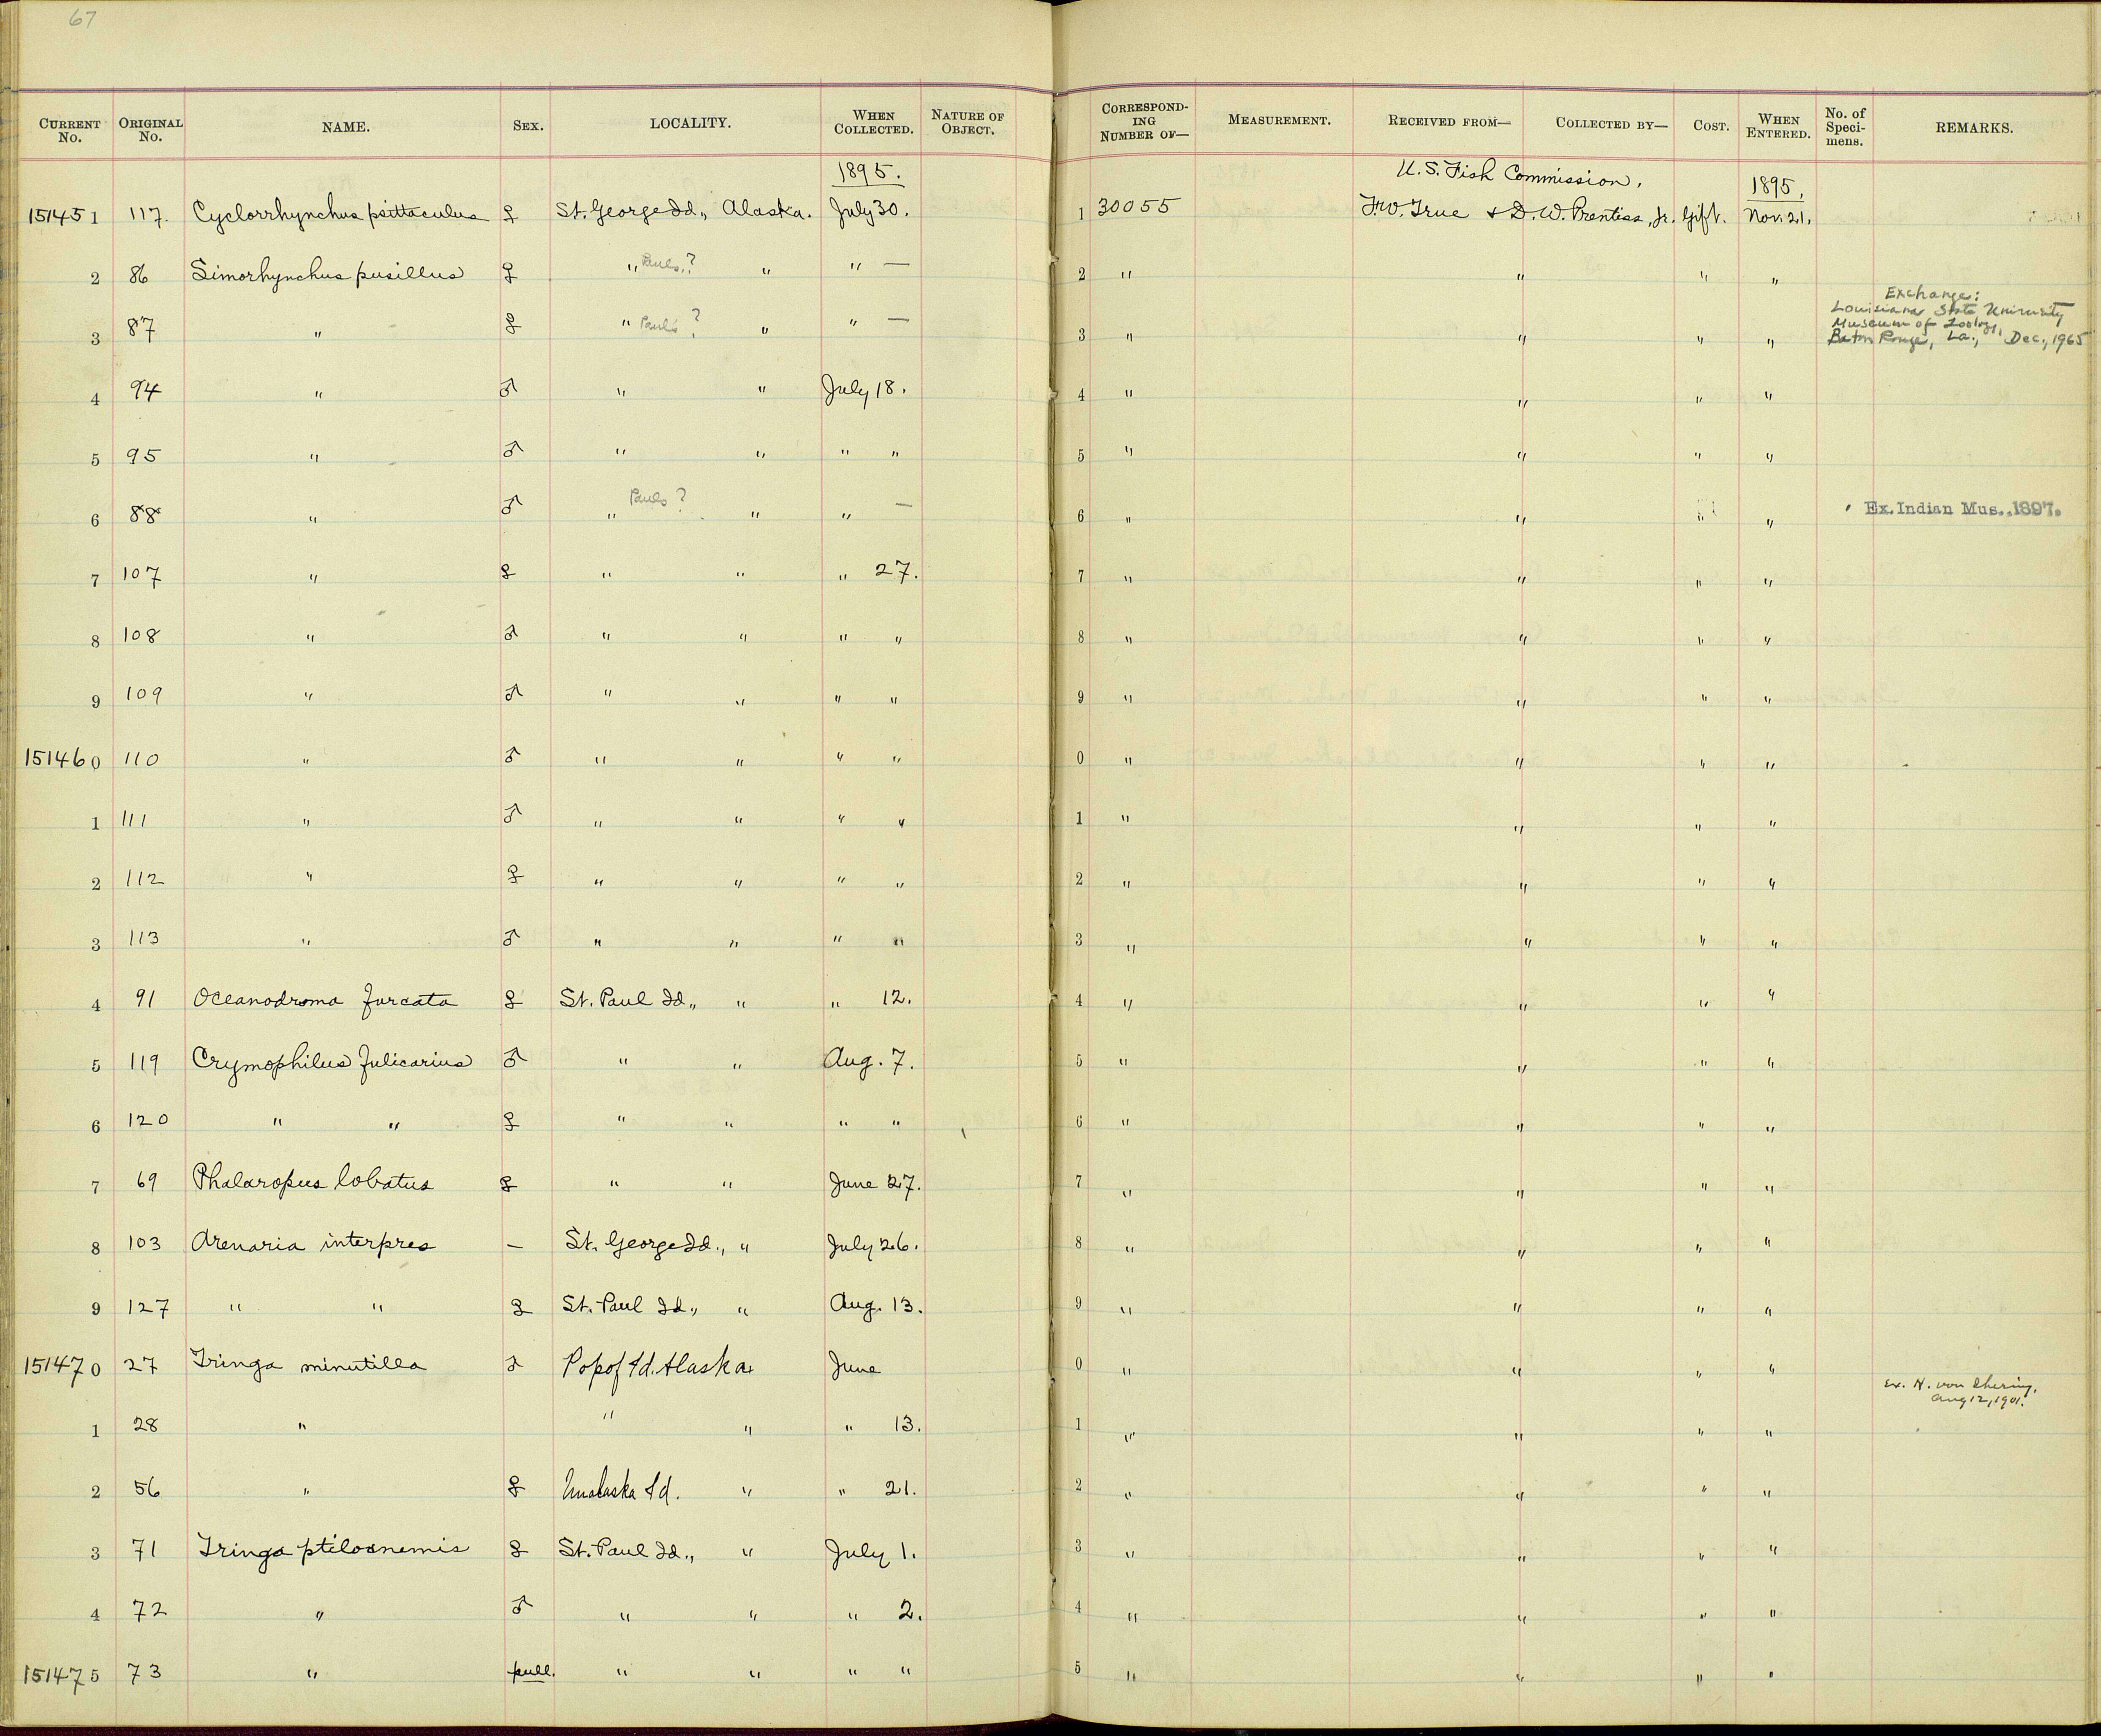 67
CURRENT No. ORIGINAL No. NAME. SEX. LOCALITY. WHEN COLLECTED. NATURE OF OBJECT. CORRESPONDING NUMBER OF— MEASUREMENT. RECEIVED FROM— COLLECTED BY— COST. WHEN ENTERED. No. of Specimens. REMARKS.
1895. U.S. Fish Commission, 1895.
151451 117. Cyclorrhynchus psittaculus ♀ St. George Id., Alaska. July 30. 1 30055 F.W. True & D.W. Prentiss, Jr. Gift. Nov. 21.
2 86 Simorhynchus pusillus ♀ " Pauls? " " — 2 " " " "
Exchange:
Louisiana State University
Museum of Zoology,
Baton Rouge, La., Dec., 1965
3 87 " ♀ " Pauls? " " — 3 " " " "
4 94 " ♂ " " July 18. 4 " " " "
5 95 " ♂ " " " " 5 " " " "
6 88 " ♂ " Pauls? " " — 6 " " " " Ex. Indian Mus., 1897.
7 107 " ♀ " " " 27. 7 " " " "
8 108 " ♂ " " " " 8 " " " "
9 109 " ♂ " " " " 9 " " " "
151460 110 " ♂ " " " " 0 " " " "
1 111 " ♂ " " " " 1 " " " "
2 112 " ♀ " " " " 2 " " " "
3 113 " ♂ " " " " 3 " " " "
4 91 Oceanodroma furcata ♀ St. Paul Id., " " 12. 4 " " " "
5 119 Crymophilus fulicarius ♂ " " Aug. 7. 5 " " " "
6 120 " " ♀ " " " " 6 " " " "
7 69 Phalaropus lobatus ♀ " " June 27. 7 " " " "
8 103 Arenaria interpres — St. George Id., " July 26. 8 " " " "
9 127 " " ♀ St. Paul Id., " Aug. 13. 9 " " " "
151470 27 Tringa minutilla ♂ Popof Id. Alaska June 0 " " " "
Ex. H. von Ihering,
Aug 12, 1901.
1 28 " " " " 13. 1 " " " "
2 56 " ♀ Unalaska Id. " " 21. 2 " " " "
3 71 Tringa ptilocnemis ♀ St. Paul Id., " July 1. 3 " " " "
4 72 " ♂ " " " 2. 4 " " " "
151475 73 " pull. " " " " 5 " " " "